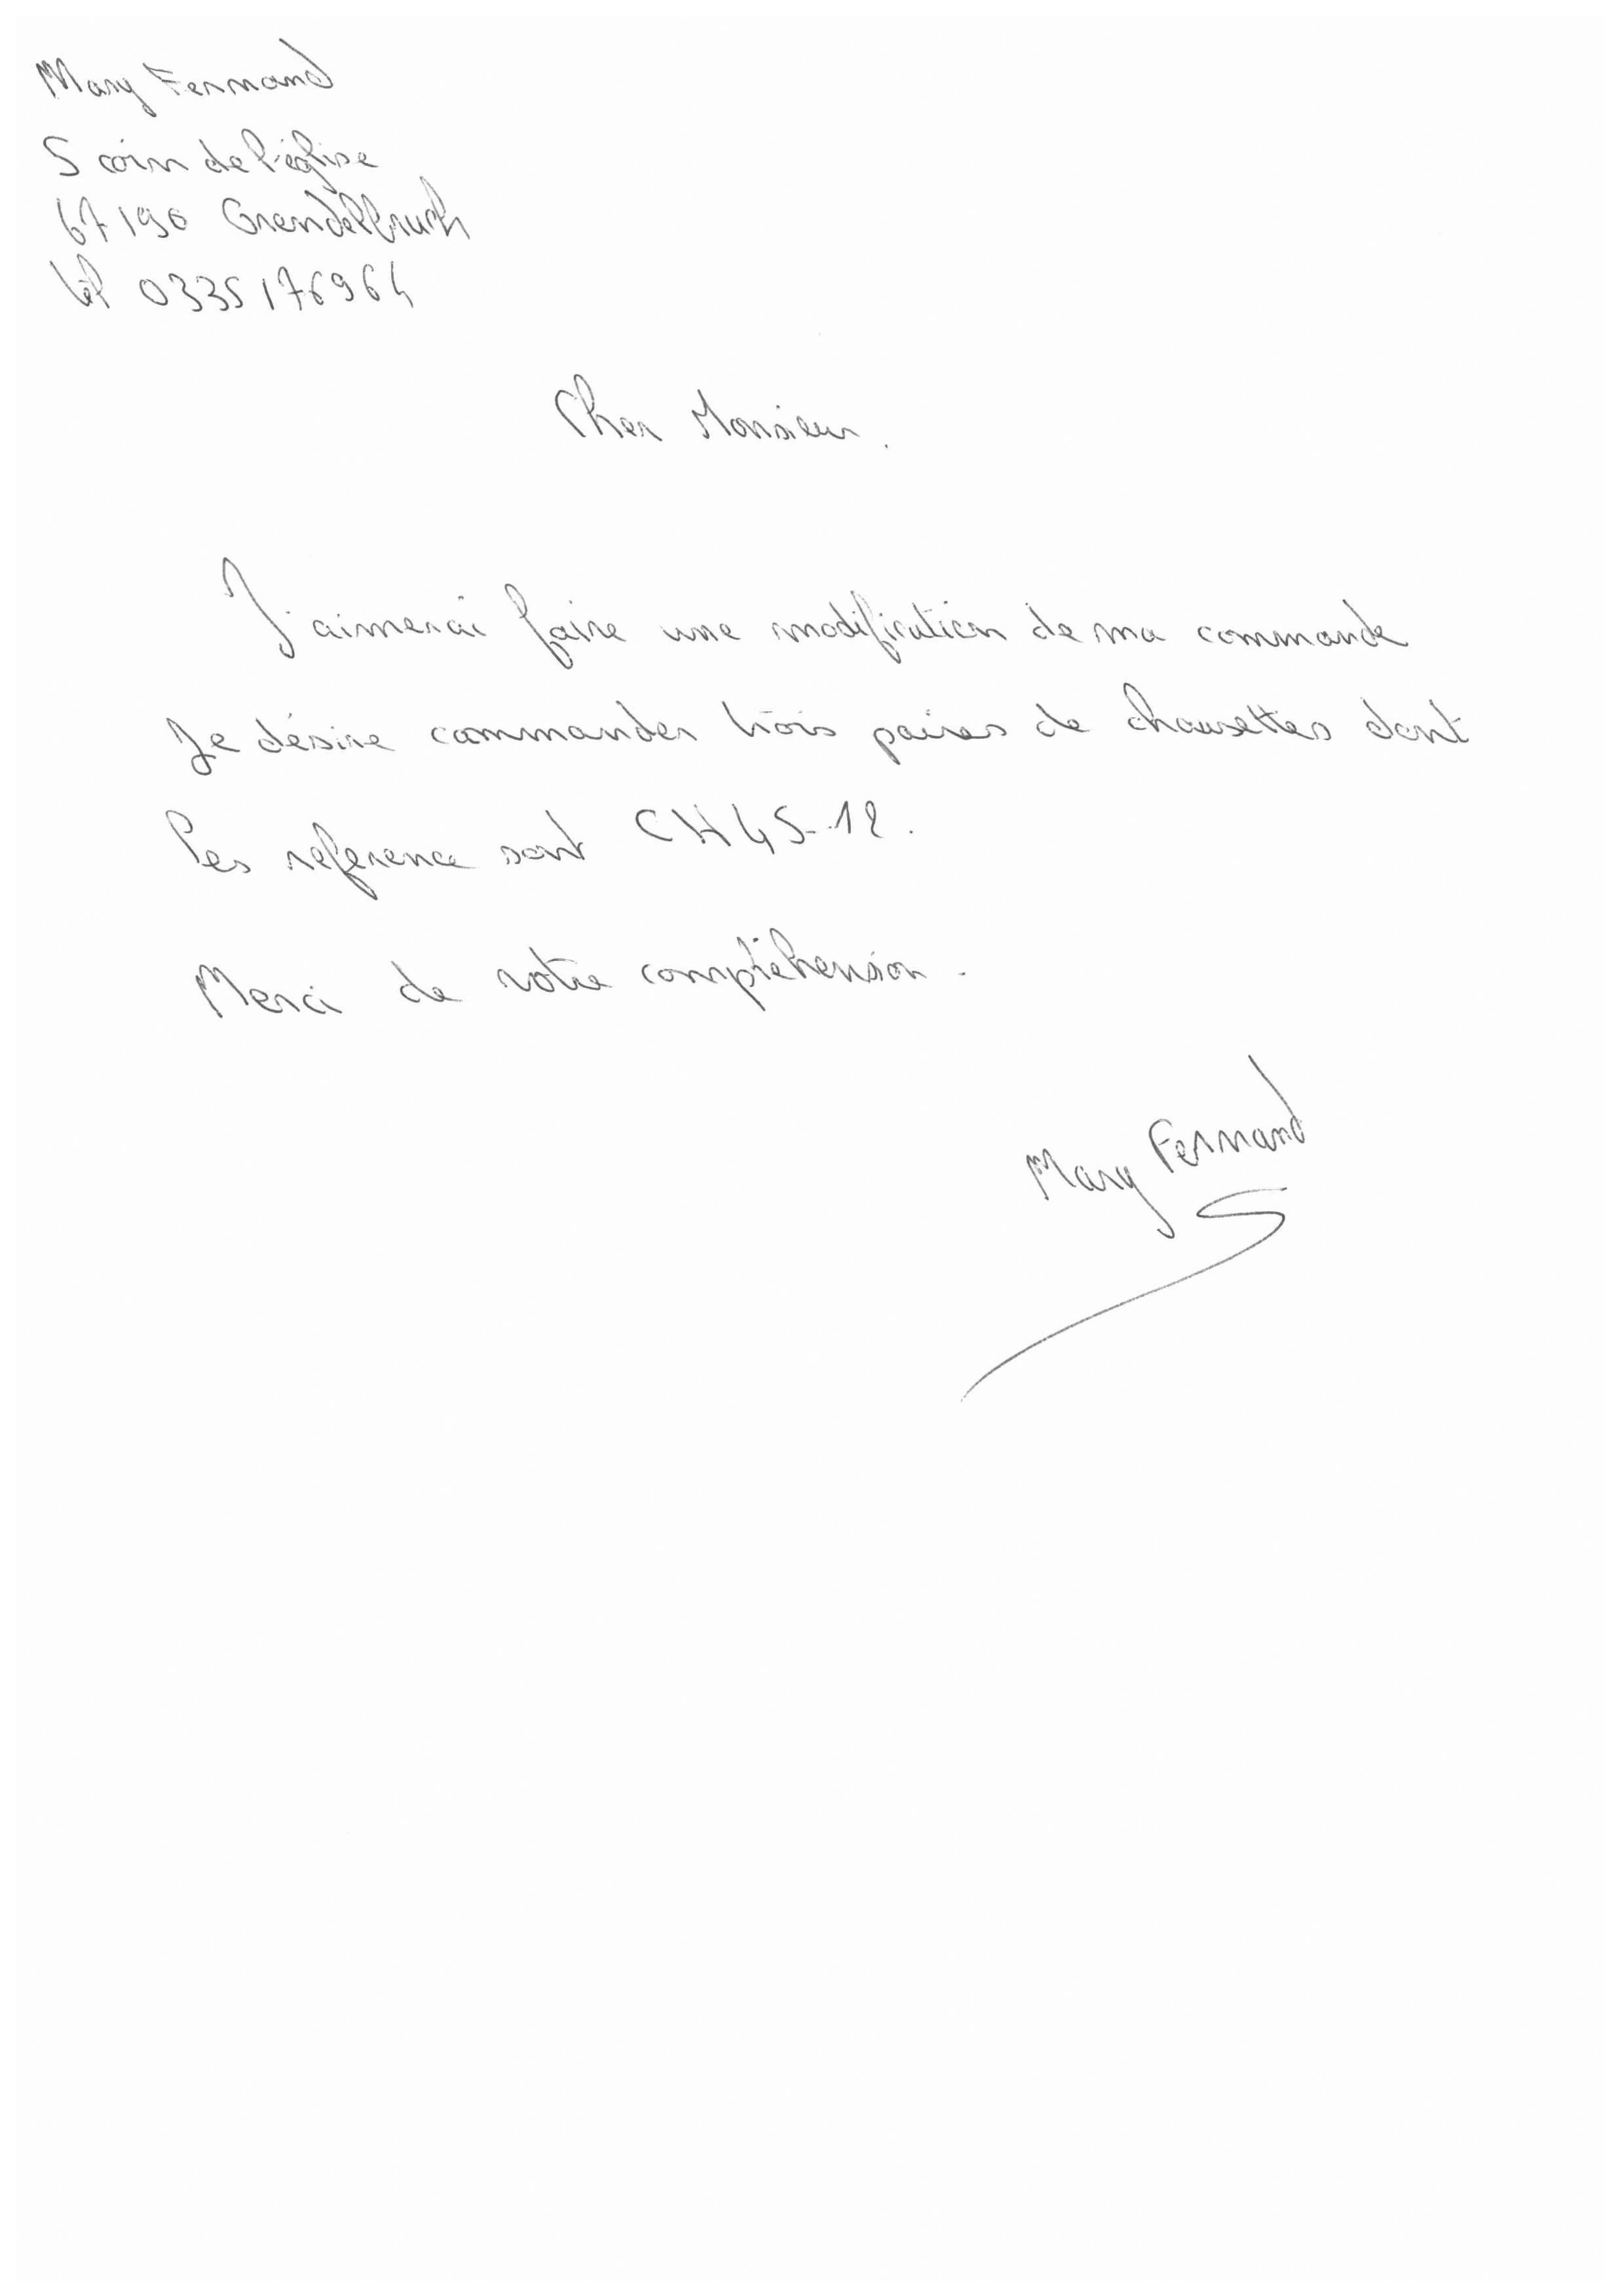 Mary Fernand
5 coin de l'église
67190 Grendelbruch
tél 0335176964
Cher Monsieur.
J'aimerai faire une modification de ma commande
Je désire commander trois paires de chausettes dont
les reference sont CH45-12.
Merci de votre compréhension.
Mary Fernand